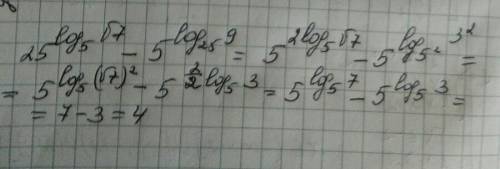 25^{log_5 √7} - 5^{log_{25} 9} = 5^{2log_5 √7} - 5^{log_{5^2} 3^2} =
= 5^{log_5 (√7)^2} - 5^{\frac{2}{2} log_5 3} = 5^{log_5 7} - 5^{log_5 3} =
= 7 - 3 = 4